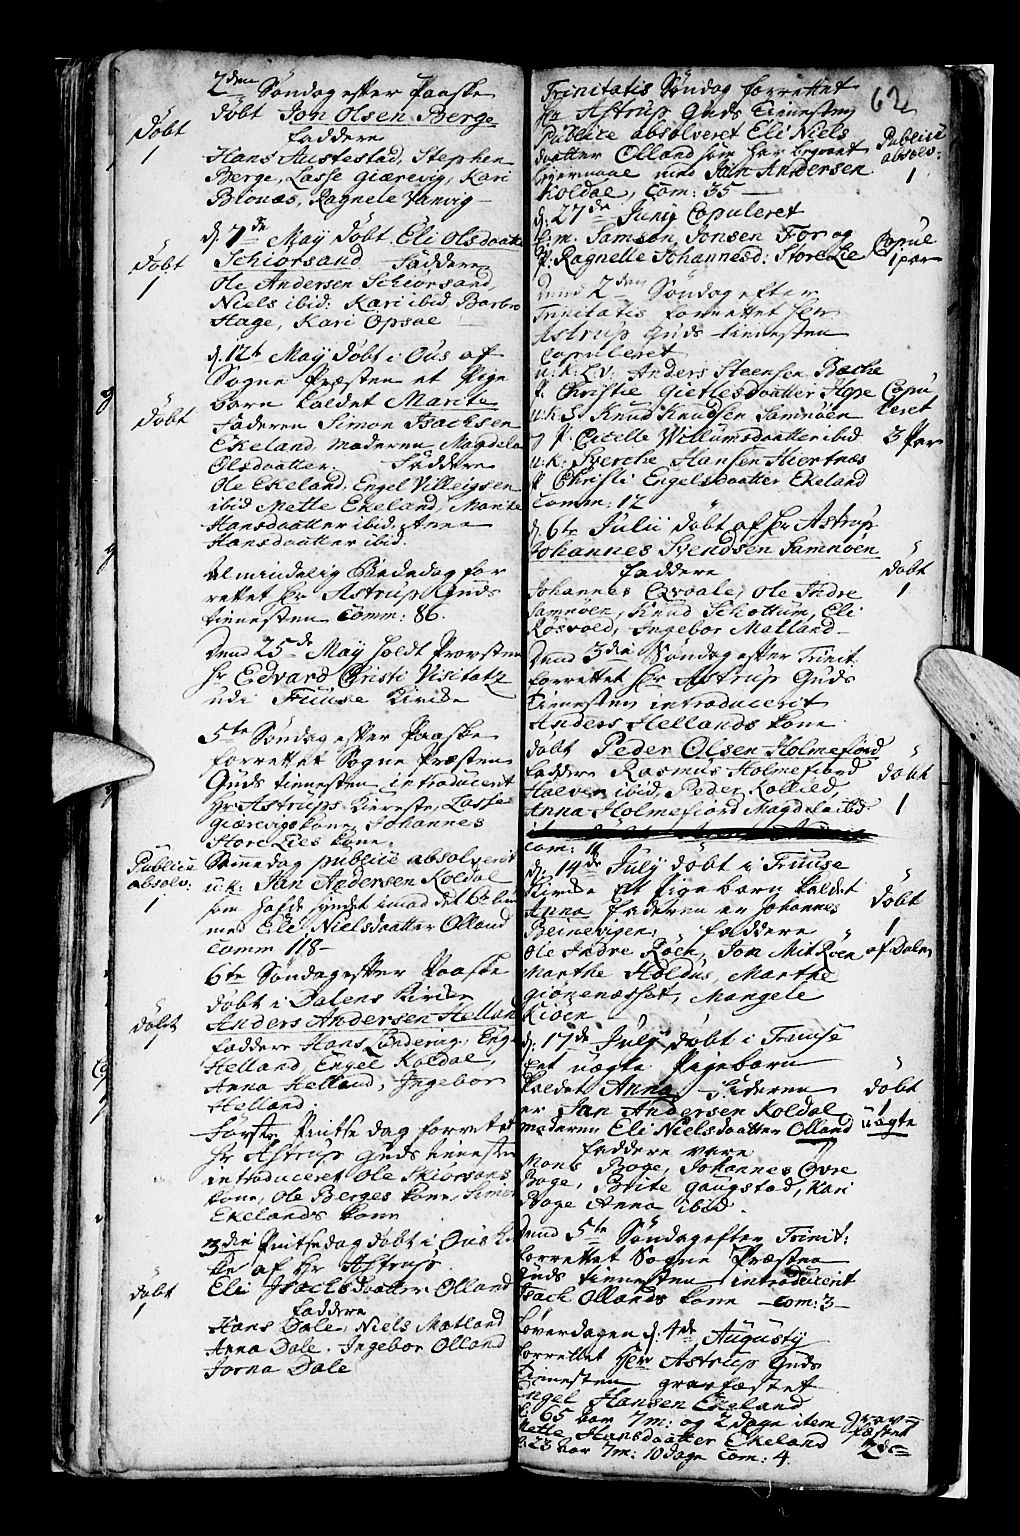 2den Söndag efter Paaske
döbt Jon Olsen Berge
döbt
1
faddere
Hans Austestad, Stephen
Berge, Lasse Giærevig, Kari
Bionæs, Ragnele Vangvig
d. 7de May döbt Eli Olsdaatter
döbt
1
Schiorsand faddere
Ole Andersen Schiorsand,
Niels ibid: Kari ibid Barbro
Hage, Kari Opsal
d. 12te May döbt i Ous af
Sogne Præsten et Pige
barn kaldet Marite
döbt
faderen Simon Isachsen
Ekeland moderen Magdela
Olsdaatter. Faddere
Ole Ekeland, Engel Villeigsen
ibid Mette Ekeland, Marite
Hansdaatter ibid. Anna
Hansdaatter ibid.
Almindelig Bededag for
rettet Hr Astrup Guds
tienesten Comm: 86.
Dend 25de May holdt Provsten
Hr Edvard Christi Visitatz
udi Fuuse Kircke
5te Söndag efter Paaske
forrettet Sogne Præsten
Guds tienesten introducerit
Hr Astrups Kiereste, Lasse
Giærevigs kone, Johannes
Store Lies kone.
Publice
absolv:
1
Samme dag publice absolverit
u: k: Jan Andersen Koldal
som hafde syndet imod det 6te bud
med Eli Nielsdaatter Olland
Comm 118-
6te Söndag efter Paaske
döbt i Dalens Kircke
döbt
1
Anders Andersen Helland
faddere Hans Lindervig, Engel
Helland, Engel Koldal,
Anna Helland, Ingebor
Helland.
Förste Pintse dag forrettet
Hr Astrup Guds tienesten
introduceret Ole Skiorsans
kone, Ole Berges kone, Simon
Ekelands kone
3die Pintsedag döbt i Ous Kir
ke af Hr Astrup.
döbt
1
Eli Isachsdaatter Olland
faddere
Hans Dale, Niels Matland
Anna Dale, Ingebor Olland
Jorna Dale
62
Trinitatis Söndag forrettet
Hr Astrup Guds tienesten
Publice absolveret Eli Niels
Publice
absolv:
1
daatter Olland som har begaaet
leiermaal med Jan Andersen
Koldal, Com: 35
d: 27de Juny Copuleret
u: m: Samson Jonsen For og
Copul
1 par
P: Ragnelle Johannesd: Store Lie
Dend 2den Söndag efter
Trinitatis forrettet Her
Astrup Guds tienesten
Copuleret
u: k: Anders Steensen Bache
P. Christie Gietlesdaatter Hope
Copu
leret
3 Par
u: k: S. Knud Knudsen Samnöen
og P. Citelle Villumsdaatter ibid
u: k: Sverche Hansen Hiertnæs
P Christi Engelsdaatter Ekeland
Comm: 12
d. 6te Julii döbt af Hr Astrup
Johannes Svendsen Samnöen
döbt
1
faddere
Johannes Qvaale, Ole Indre
Samnöen, Knud Schottum, Eli
Rösvold, Ingebor Matland
Dend 3die Söndag efter Trinit:
forrettet Hr Astrup Guds
tienesten introducerit
Anders Hellands kone
döbt Peder Olsen Holmefiord
döbt
1
faddere Rasmus Holmefiord
Halvor ibid. Peder Kollied,
Anna Holmefiord Magdela ibd
Com: 11
d: 14de July döbt i Fuuse
Kircke et Pigebarn kaldet
döbt
1
af Dalen
Anna faderen er Johannes
Beinevigen; faddere
Ole Indre Röen, Jon Mit Röen
Marthe Holdus, Marthe
Giönenæsset, Mangele
Kioen
d: 17de July döbt i Fuuse
Eet uægte Pigebarn
kaldet Anna Faderen
döbt
1
uægte
er Jan Andersen Koldal
moderen Eli Nielsdaatter Olland
faddere vare
Mons Boge, Johannes Övre
Boge, Brite Gaugstad, Kari
Boge Anna ibid.
Dend 5te Söndag efter Trinit:
forrettet Sogne Præsten
Guds tienesten introducerit
Isack Ollands kone com: 3
Löverdagen d: 4de Augusty
forrettet Herr Astrup Guds
tienesten gravfæstet
Engel Hansen Ekeland
65 aar 7 m: og 2 dage item
grav=
fæstet
2de
Mette Hansdaatter Ekeland
23 aar 7 m: 10 dage Com: 4.